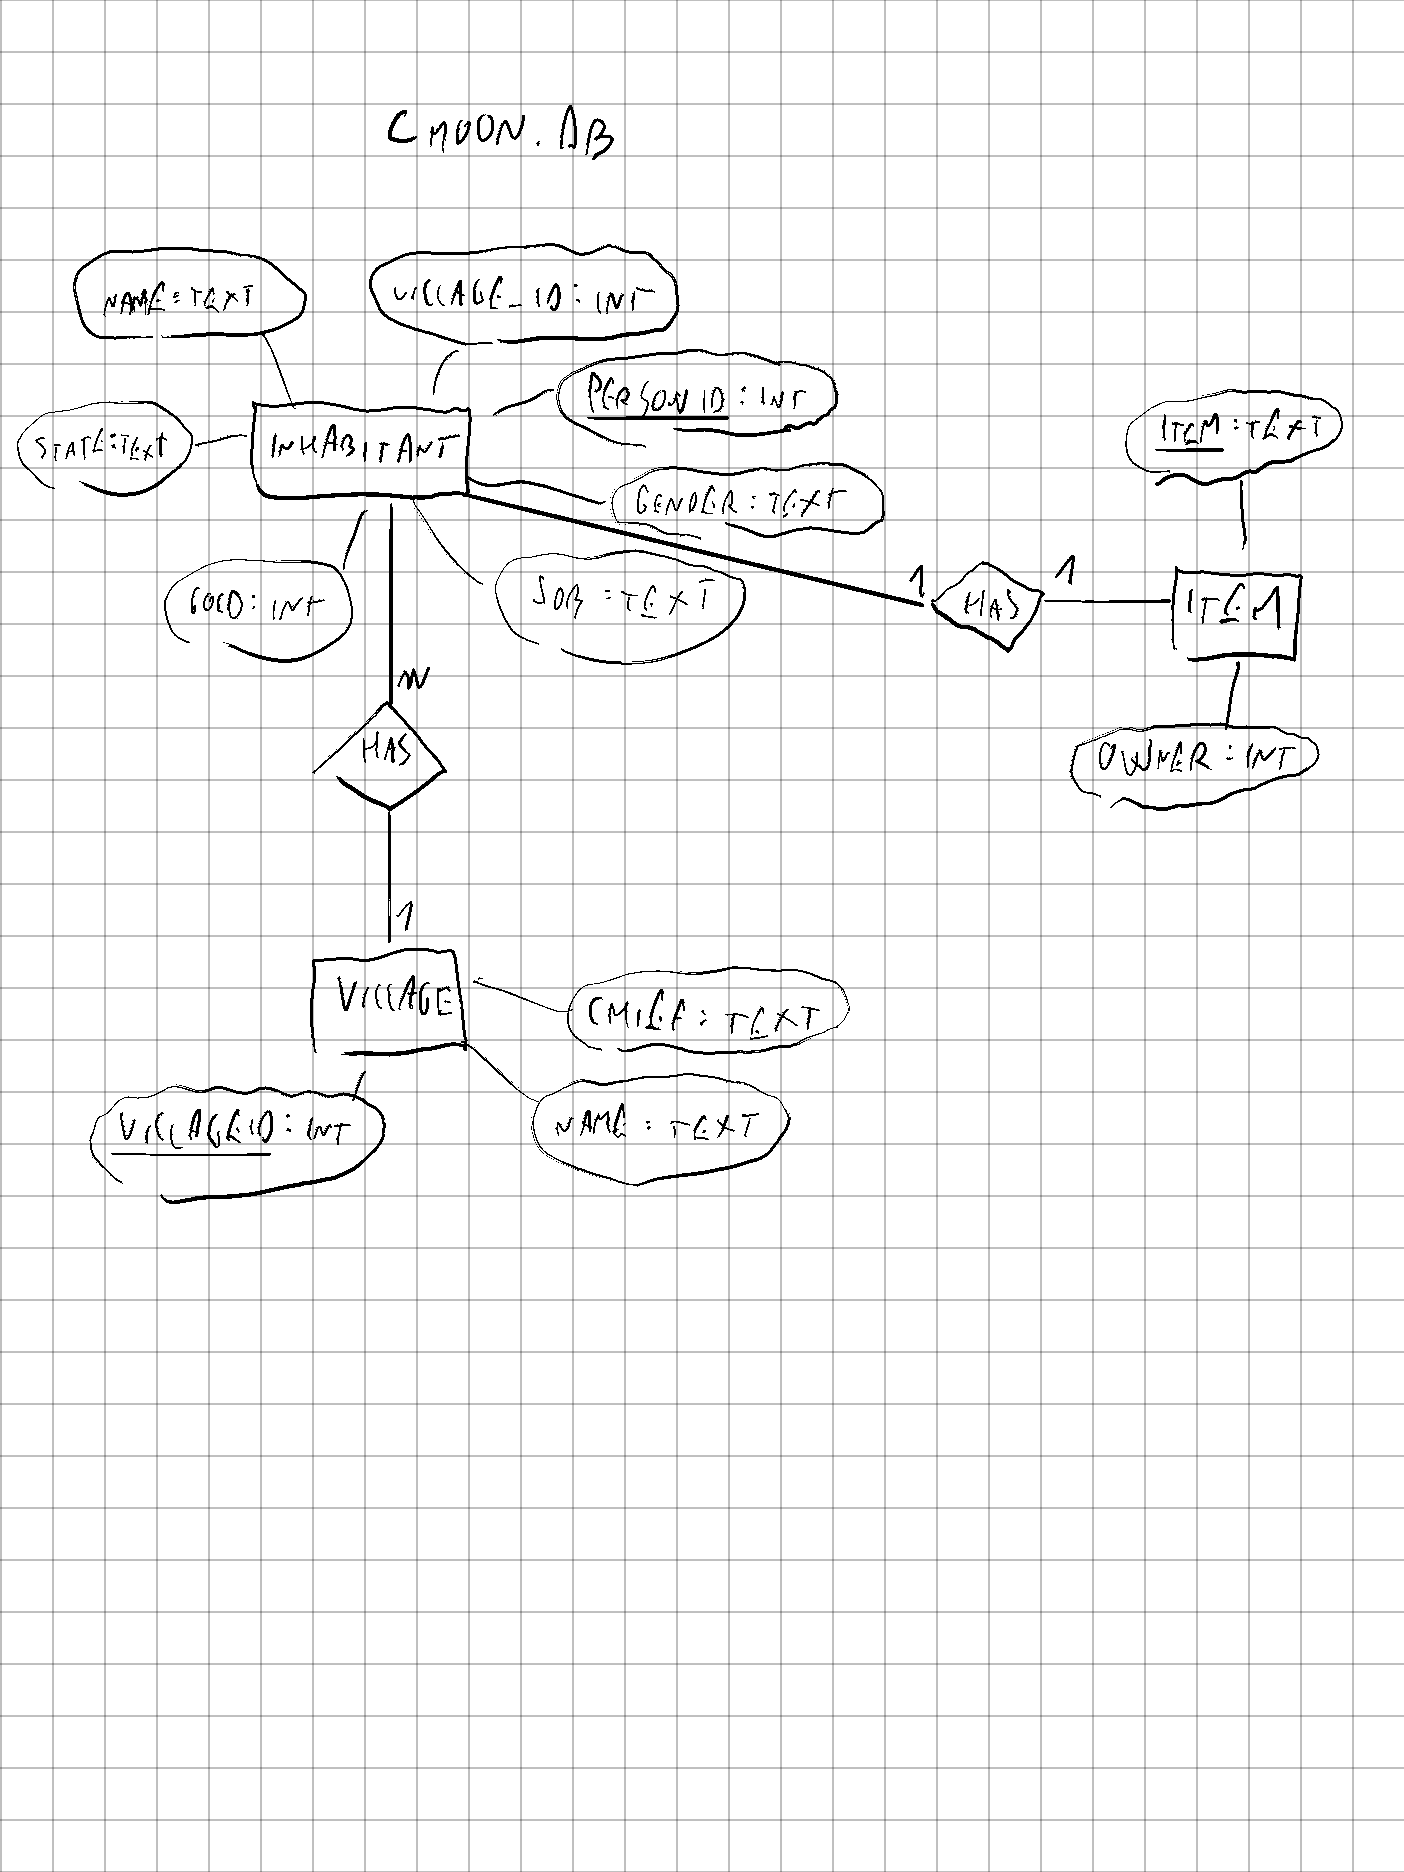 CMOON.DB
NAME:TEXT
VILLAGE_ID:INT
PERSONID:INT
STATE:TEXT
INHABITANT
ITEM:TEXT
GENDER:TEXT
GOLD:INT
JOB:TEXT
1
HAS
1
ITEM
N
HAS
OWNER:INT
1
VILLAGE
CHIEF:TEXT
VILLAGEID:INT
NAME:TEXT